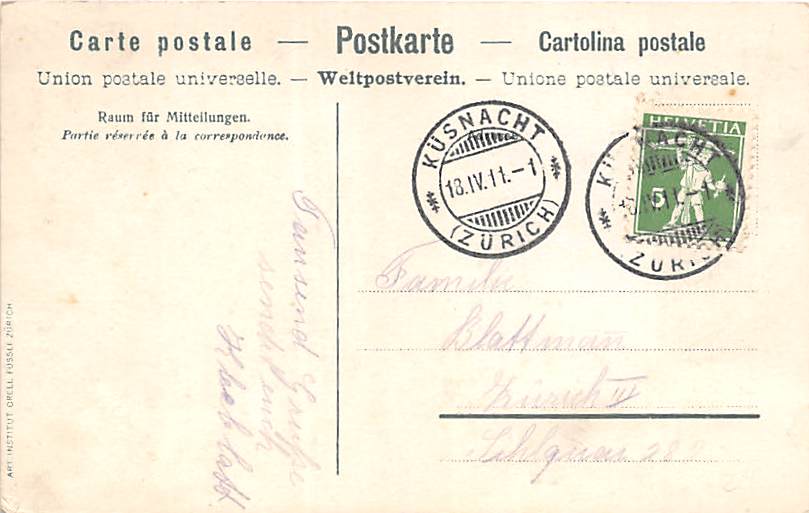 Carte postale — Postkarte — Cartolina postale
Union postale universelle. — Weltpostverein. — Unione postale universale.
Raum für Mitteilungen.
Partie réservée à la correspondance.
Tausend Grüsse
sendet euch
KÜSNACHT
18.IV.11.-1
(ZÜRICH)
HELVETIA
5
KÜSNACHT
IV.11.-1
(ZÜRICH)
Familie
Blattmann
Zürich III
ART. INSTITUT ORELL FÜSSLI, ZÜRICH